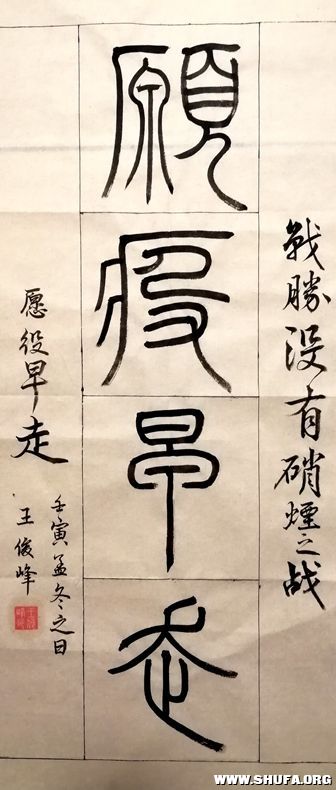 戰勝没有硝煙之战
願疫早走
愿役早走
壬寅孟冬之日
王俊峰
WWW.SHUFA.ORG